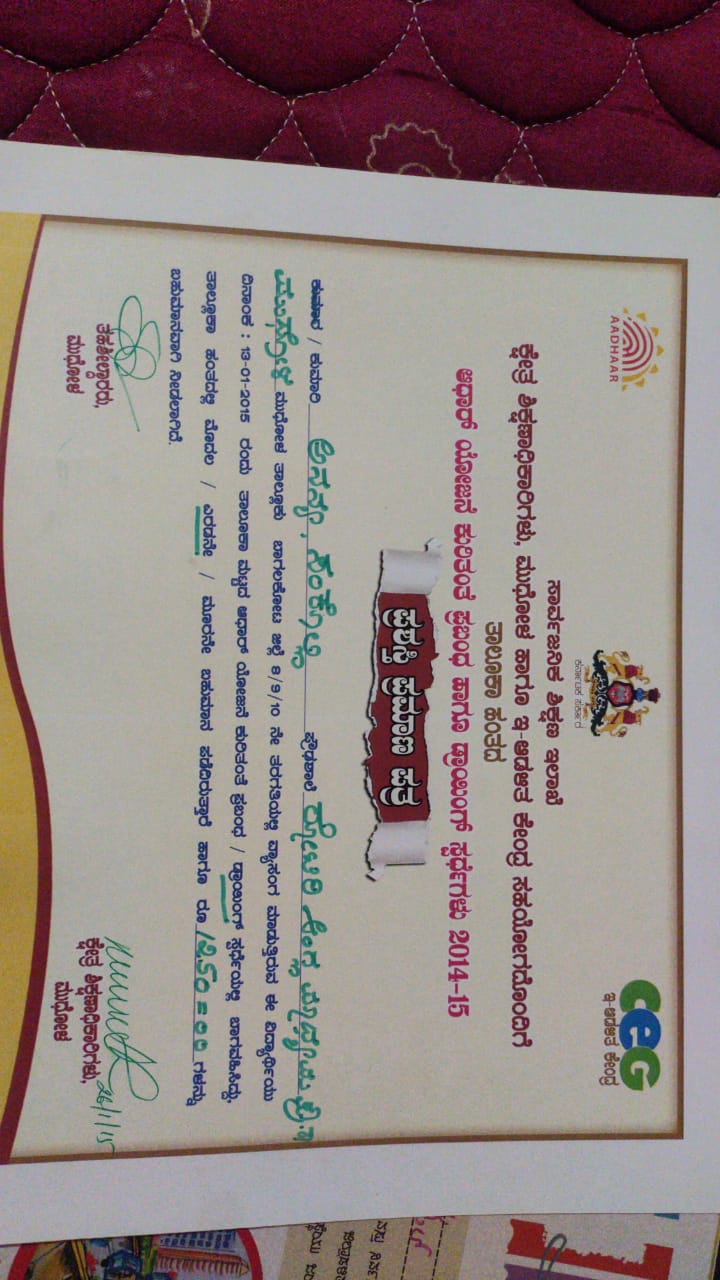 AADHAAR
ಕರ್ನಾಟಕ ಸರ್ಕಾರ
CeG
ಇ-ಆಡಳಿತ ಕೇಂದ್ರ
ಸಾರ್ವಜನಿಕ ಶಿಕ್ಷಣ ಇಲಾಖೆ
ಕ್ಷೇತ್ರ ಶಿಕ್ಷಣಾಧಿಕಾರಿಗಳು, ಮುಧೋಳ ಹಾಗೂ ಇ-ಆಡಳಿತ ಕೇಂದ್ರ ಸಹಯೋಗದೊಂದಿಗೆ
ತಾಲೂಕಾ ಹಂತದ
ಆಧಾರ್ ಯೋಜನೆ ಕುರಿತಂತೆ ಪ್ರಬಂಧ ಹಾಗೂ ಡ್ರಾಯಿಂಗ್ ಸ್ಪರ್ಧೆಗಳು 2014-15
ಪ್ರಶಸ್ತಿ ಪ್ರಮಾಣ ಪತ್ರ
ಕುಮಾರ / ಕುಮಾರಿ ಅನನ್ಯಾ. ಸಂಕೊಳ್ಳಿ ಪ್ರೌಢಶಾಲೆ ರೋಟರಿ ಆಂಗ್ಲ ಮಾಧ್ಯಮ
ಮುಧೋಳ ಮುಧೋಳ ತಾಲ್ಲೂಕು ಬಾಗಲಕೋಟ ಜಿಲ್ಲೆ 8/9/10 ನೇ ತರಗತಿಯಲ್ಲಿ ವ್ಯಾಸಂಗ ಮಾಡುತ್ತಿರುವ ಈ ವಿದ್ಯಾರ್ಥಿಯು
ದಿನಾಂಕ : 13-01-2015 ರಂದು ತಾಲೂಕಾ ಮಟ್ಟದ ಆಧಾರ್ ಯೋಜನೆ ಕುರಿತಂತೆ ಪ್ರಬಂಧ / ಡ್ರಾಯಿಂಗ್ ಸ್ಪರ್ಧೆಯಲ್ಲಿ ಬಾಗವಹಿಸಿದ್ದು,
ತಾಲ್ಲೂಕಾ ಹಂತದಲ್ಲಿ ಮೊದಲ / ಎರಡನೇ / ಮೂರನೇ ಬಹುಮಾನ ಪಡೆದಿರುತ್ತಾರೆ ಹಾಗೂ ರೂ 1250=00 ಗಳನ್ನು
ಬಹುಮಾನವಾಗಿ ನೀಡಲಾಗಿದೆ.
ತಹಶೀಲ್ದಾರರು,
ಮುಧೋಳ
26/1/15
ಕ್ಷೇತ್ರ ಶಿಕ್ಷಣಾಧಿಕಾರಿಗಳು,
ಮುಧೋಳ